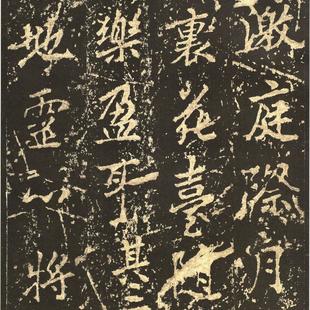 激庭際月
裏花臺隨
樂盈耳其三
地靈將